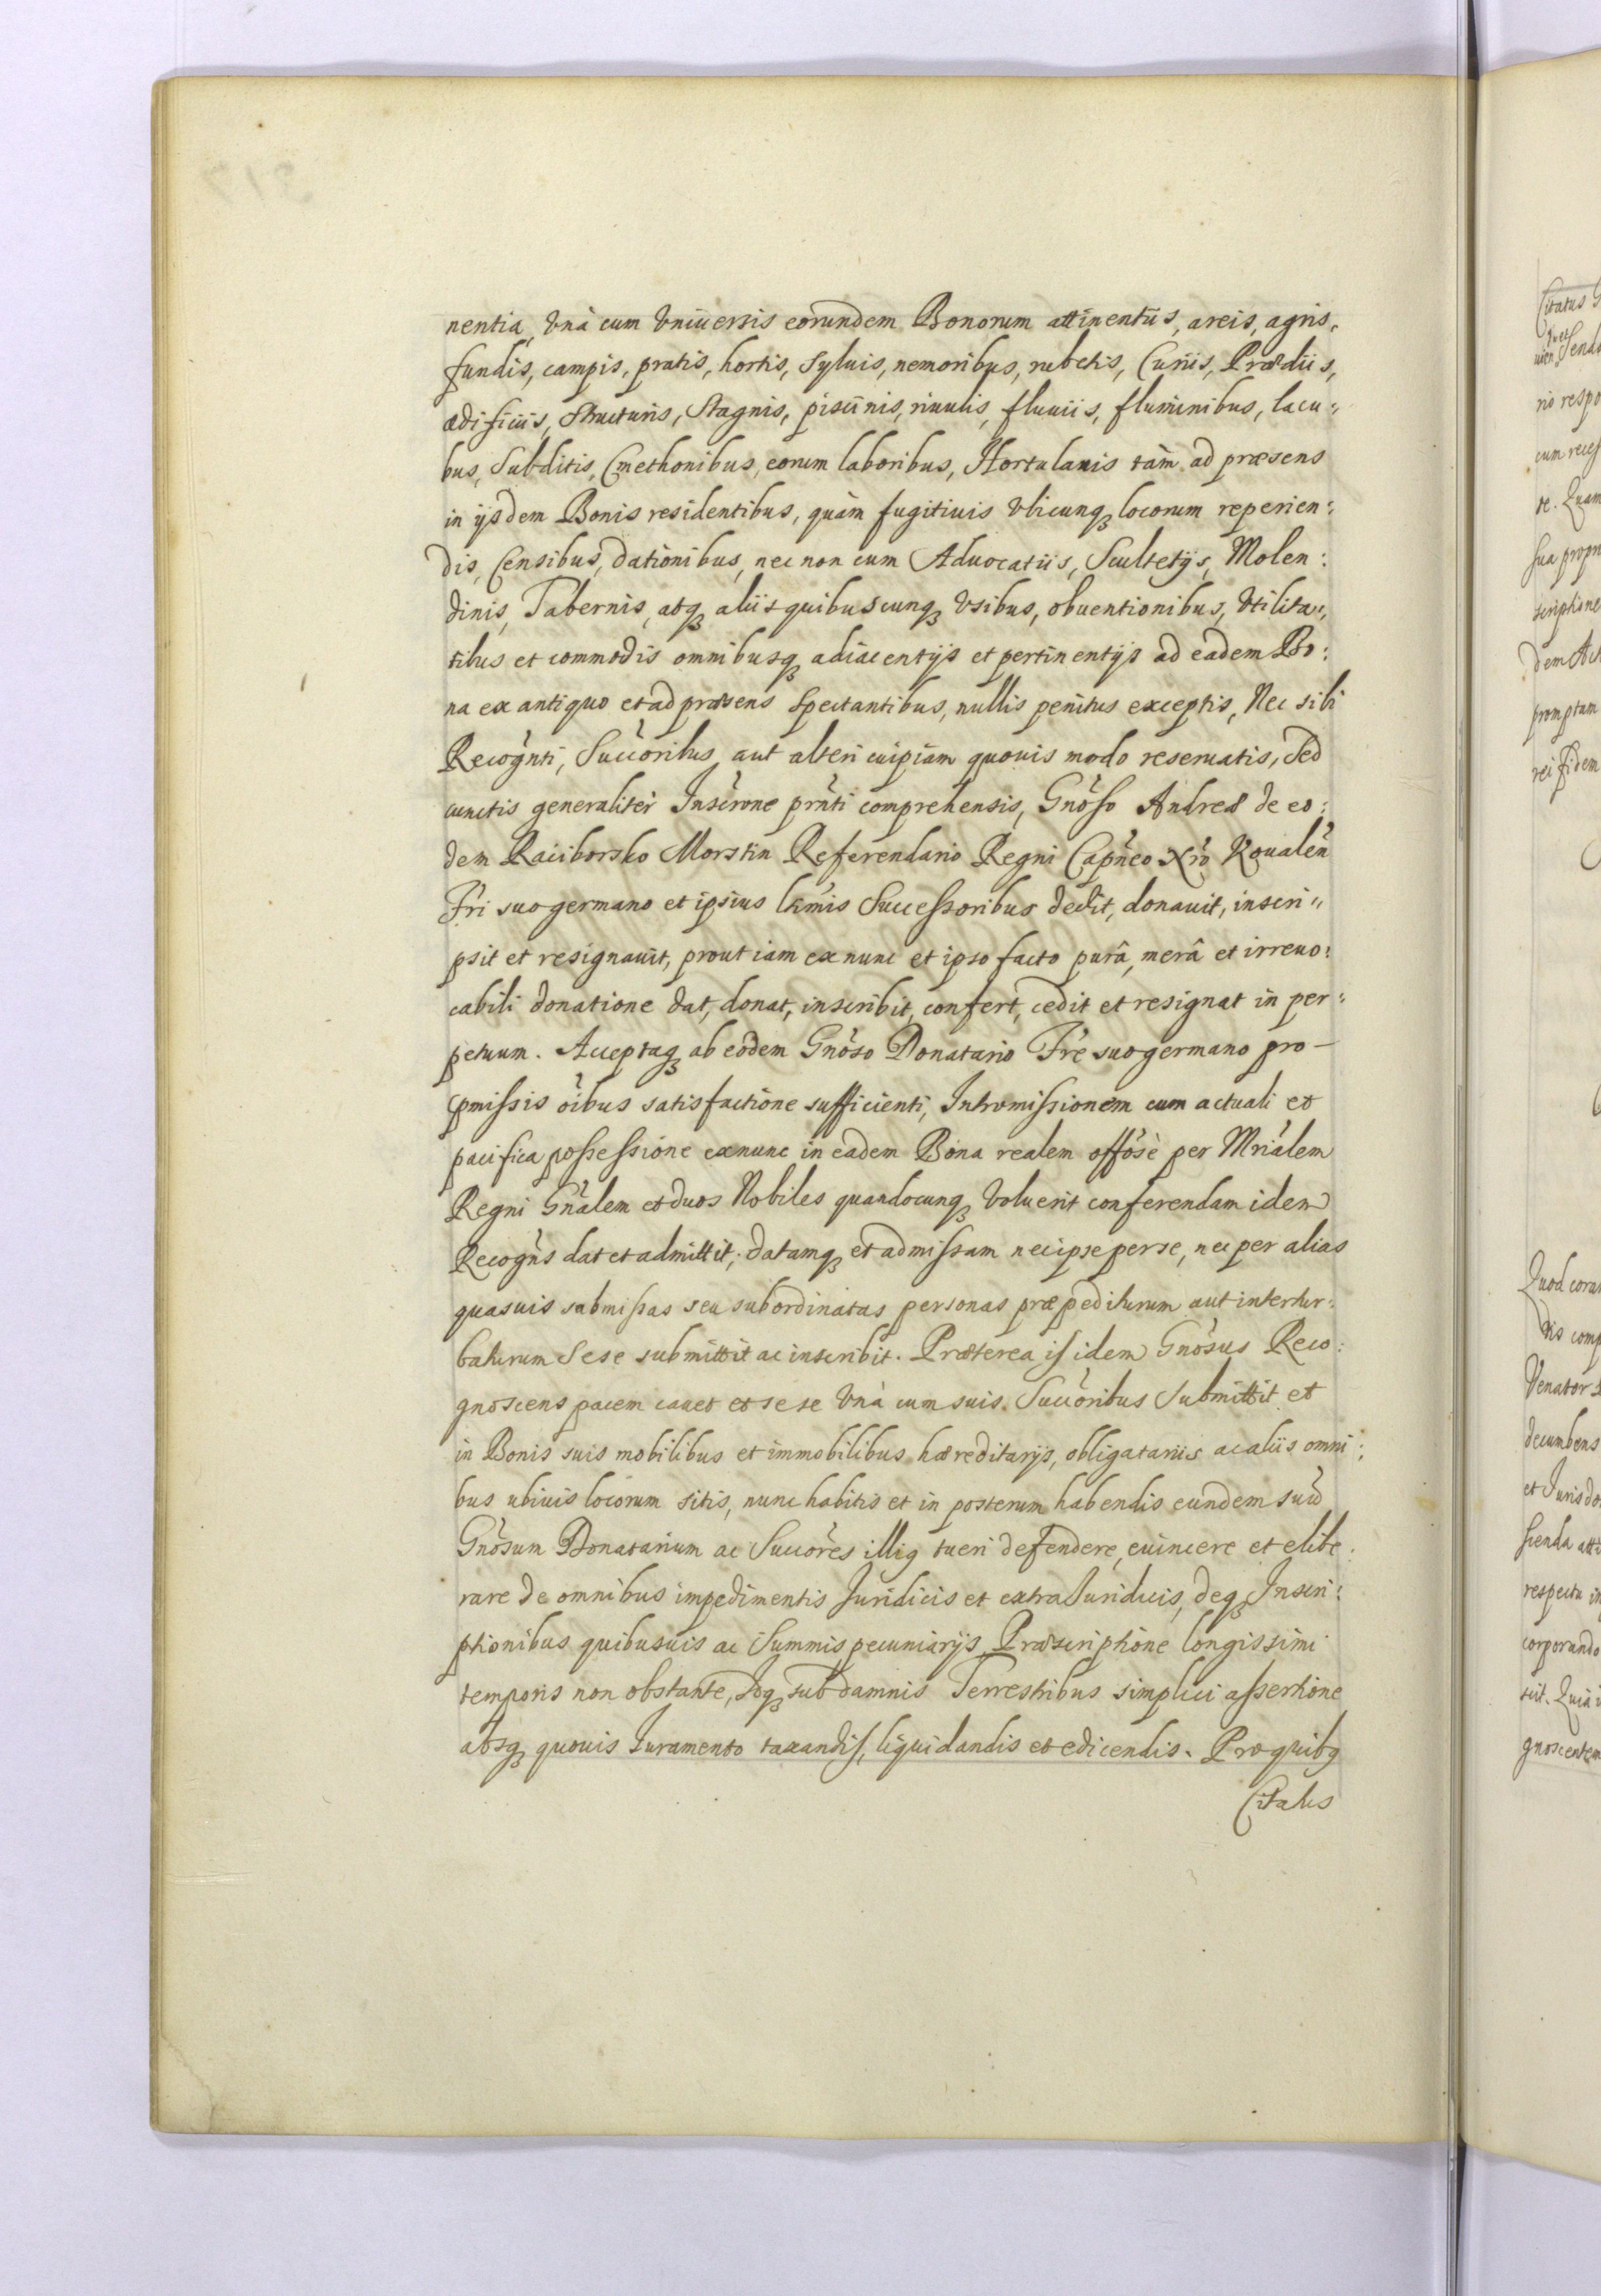 nentia, Vnà cum Vniuersis eorundem Bonorum attinentiis, areis, agris,
fundis, campis, pratis, hortis, syluis, nemoribus, rubetis, Curiis, Prædiis,
ædificiis, Structuris, Stagnis, piscinis, riuulis, fluuiis, fluminibus, lacu„
bus, Subditis, Cmethonibus, eorum laboribus, Hortulanis tàm ad præsens
in ijsdem Bonis residentibus, quàm fugitiuis Vbicunqꝫ locorum reperien:
dis, Censibus, dationibus, nec non cum Aduocatiis, Scultetijs, Molen:
dinis, Tabernis, atqꝫ aliis quibuscunqꝫ Vsibus, obuentionibus, Vtilita„
tibus et commodis omnibusqꝫ adiacentijs et pertinentijs ad eadem Bo:
na ex antiquo et ad præsens Spectantibus, nullis penitus exceptis, Nec sibi
Recognti, Succoribus, aut alteri cuipiam quouis modo reseruatis, Sed
cunctis generaliter Inscrone prnti comprehensis, Gnoso Andreæ de eo:
dem Raciborsko Morstin Referendario Regni Capneo Nro Koualen
Fri suo germano et ipsius ltimis Successoribus dedit, donauit, inscri„
psit et resignauit, prout iam ex nunc et ipso facto purâ, merâ et irreuo:
cabili donatione dat, donat, inscribit, confert, cedit et resignat in per„
petuum. Acceptaqꝫ ab eodem Gnoso Donatario Fre suo germano pro
pmissis oibus satisfactione sufficienti, Intromissionem cum actuali et
pacifica possessione exnunc in eadem Bona realem offosè per Mrialem
Regni Gnalem et duos Nobiles quandocunqꝫ Voluerit conferendam idem
Recogns dat et admittit; datamqꝫ et admissam nec ipse per se, nec per alias
quasuis submissas seu subordinatas personas præpediturum aut intertur:
baturum Sese submittit ac inscribit. Præterea is idem Gnosus Reco:
gnoscens pacem cauet et sese Vnà cum suis Succoribus Submittit et
in Bonis suis mobilibus et immobilibus hæreditarijs, obligatariis ac aliis omni:
bus ubiuis locorum sitis, nunc habitis et in posterum habendis eundem suu
Gnosum Donatarium ac Succores illiq tueri defendere, euincere et elibe:
rare de omnibus impedimentis Iuridicis et extraIuridicis, deqꝫ Inscri:
ptionibus quibusuis ac Summis pecuniarijs Præscriptione longissimi
temporis non obstante, Idqꝫ sub damnis Terrestribus simplici assertione
absqꝫ quouis Iuramento taxandis, liquidandis et edicendis. Pro quibq
Citatus